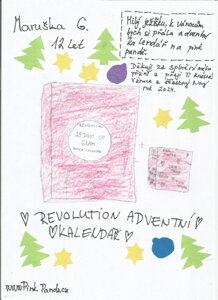 Maruška G.
12 let
Milý ježíšku, k vánocům
bych si přála adventní
kalendář na pink
panda.
Děkuji za splnění mého
přání a přeji Ti krásné
Vánoce a šťastný Nový
rok 2024.
REVOLUTION
25 DAYS OF
GLAM
ADVENT CALENDAR
REVOLUTION ADVENTNÍ
KALENDÁŘ
www.PinkPanda.cz